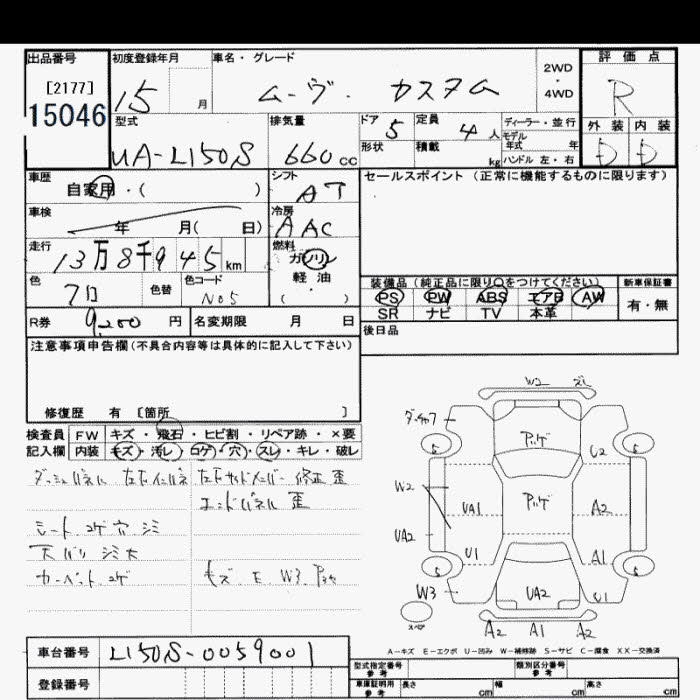 出品番号 初度登録年月 車名・グレード 評価点
[2177]
15046
15 月
ムーヴ. カスタム
2WD
・
4WD
R
型式 排気量 ドア 定員 ディーラー・並行 外装 内装
UA-L150S 660cc
5 4人
モデル年式 年
形状 積載 kg ハンドル 左・右
D D
車歴 自家用・( ) シフト AT
セールスポイント (正常に機能するものに限ります)
車検 年 月( 日) 冷房 AAC
走行 13万8千945km 燃料 ガソリン
軽・油
( )
色 色替 色コード
クロ N05
装備品(純正品に限り○をつけてください) 新車保証書
PS PW ABS エアB AW 有・無
SR ナビ TV 本革
R券 9,200 円 名変期限 月 日
後日品
注意事項申告欄(不具合内容等は具体的に記入して下さい)
修復歴 有 [箇所 ]
検査員 FW キズ・飛石・ヒビ割・リペア跡・×要
記入欄 内装 キズ・汚レ・コゲ・穴・スレ・キレ・破レ
修正 歪
エンドパネル 歪
シート コゲ 穴 シミ
天バリ シミ大
カーペット コゲ
キズ. E W3
W2
5 5
U2
W2
UA1
A2
UA2
U1
A1
5 5
W3
UA2
U1
スペア
A2 A1 A2
A−キズ E−エクボ U−凹み W−補修跡 S−サビ C−腐食 XX−交換済
車台番号 L150S-0059001
登録番号
型式指定番号 参考 類別区分番号 参考
車庫証明用 参考 長さ cm 幅 cm 高さ cm